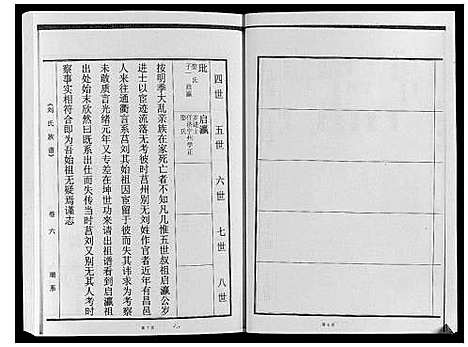 四世 五世 六世 七世 八世
玭
娶 氏
子一 启瀛
启瀛
娶 氏
按明季大乱亲族在家死亡者不知凡几惟五世叔祖启瀛公岁
进士以宦迹流落无考彼时莒州别无刘姓作官者近年有昌邑
人来往通衢言系莒刘其始祖因宦留于彼而失其讳求为考察
未敢质言光绪元年又专差在坤世功来请出祖谱看到启瀛祖
出处始末欣然曰既系出仕而失传当时莒刘又别无其人考时
察事实相符合即为吾始祖无疑焉谨志
《刘氏族谱》
卷六